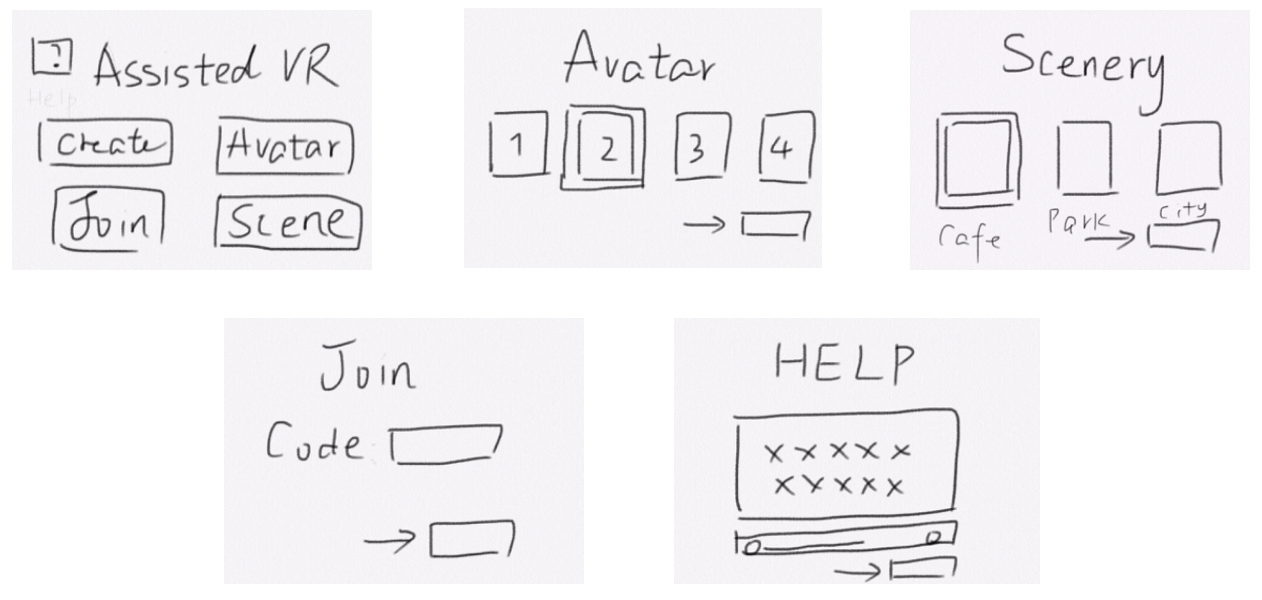 ? Assisted VR
Help
Create Avatar
Join Scene
Avatar
1 2 3 4
Scenery
Cafe Park City
Join
Code
HELP
x x x x x
x x x x x